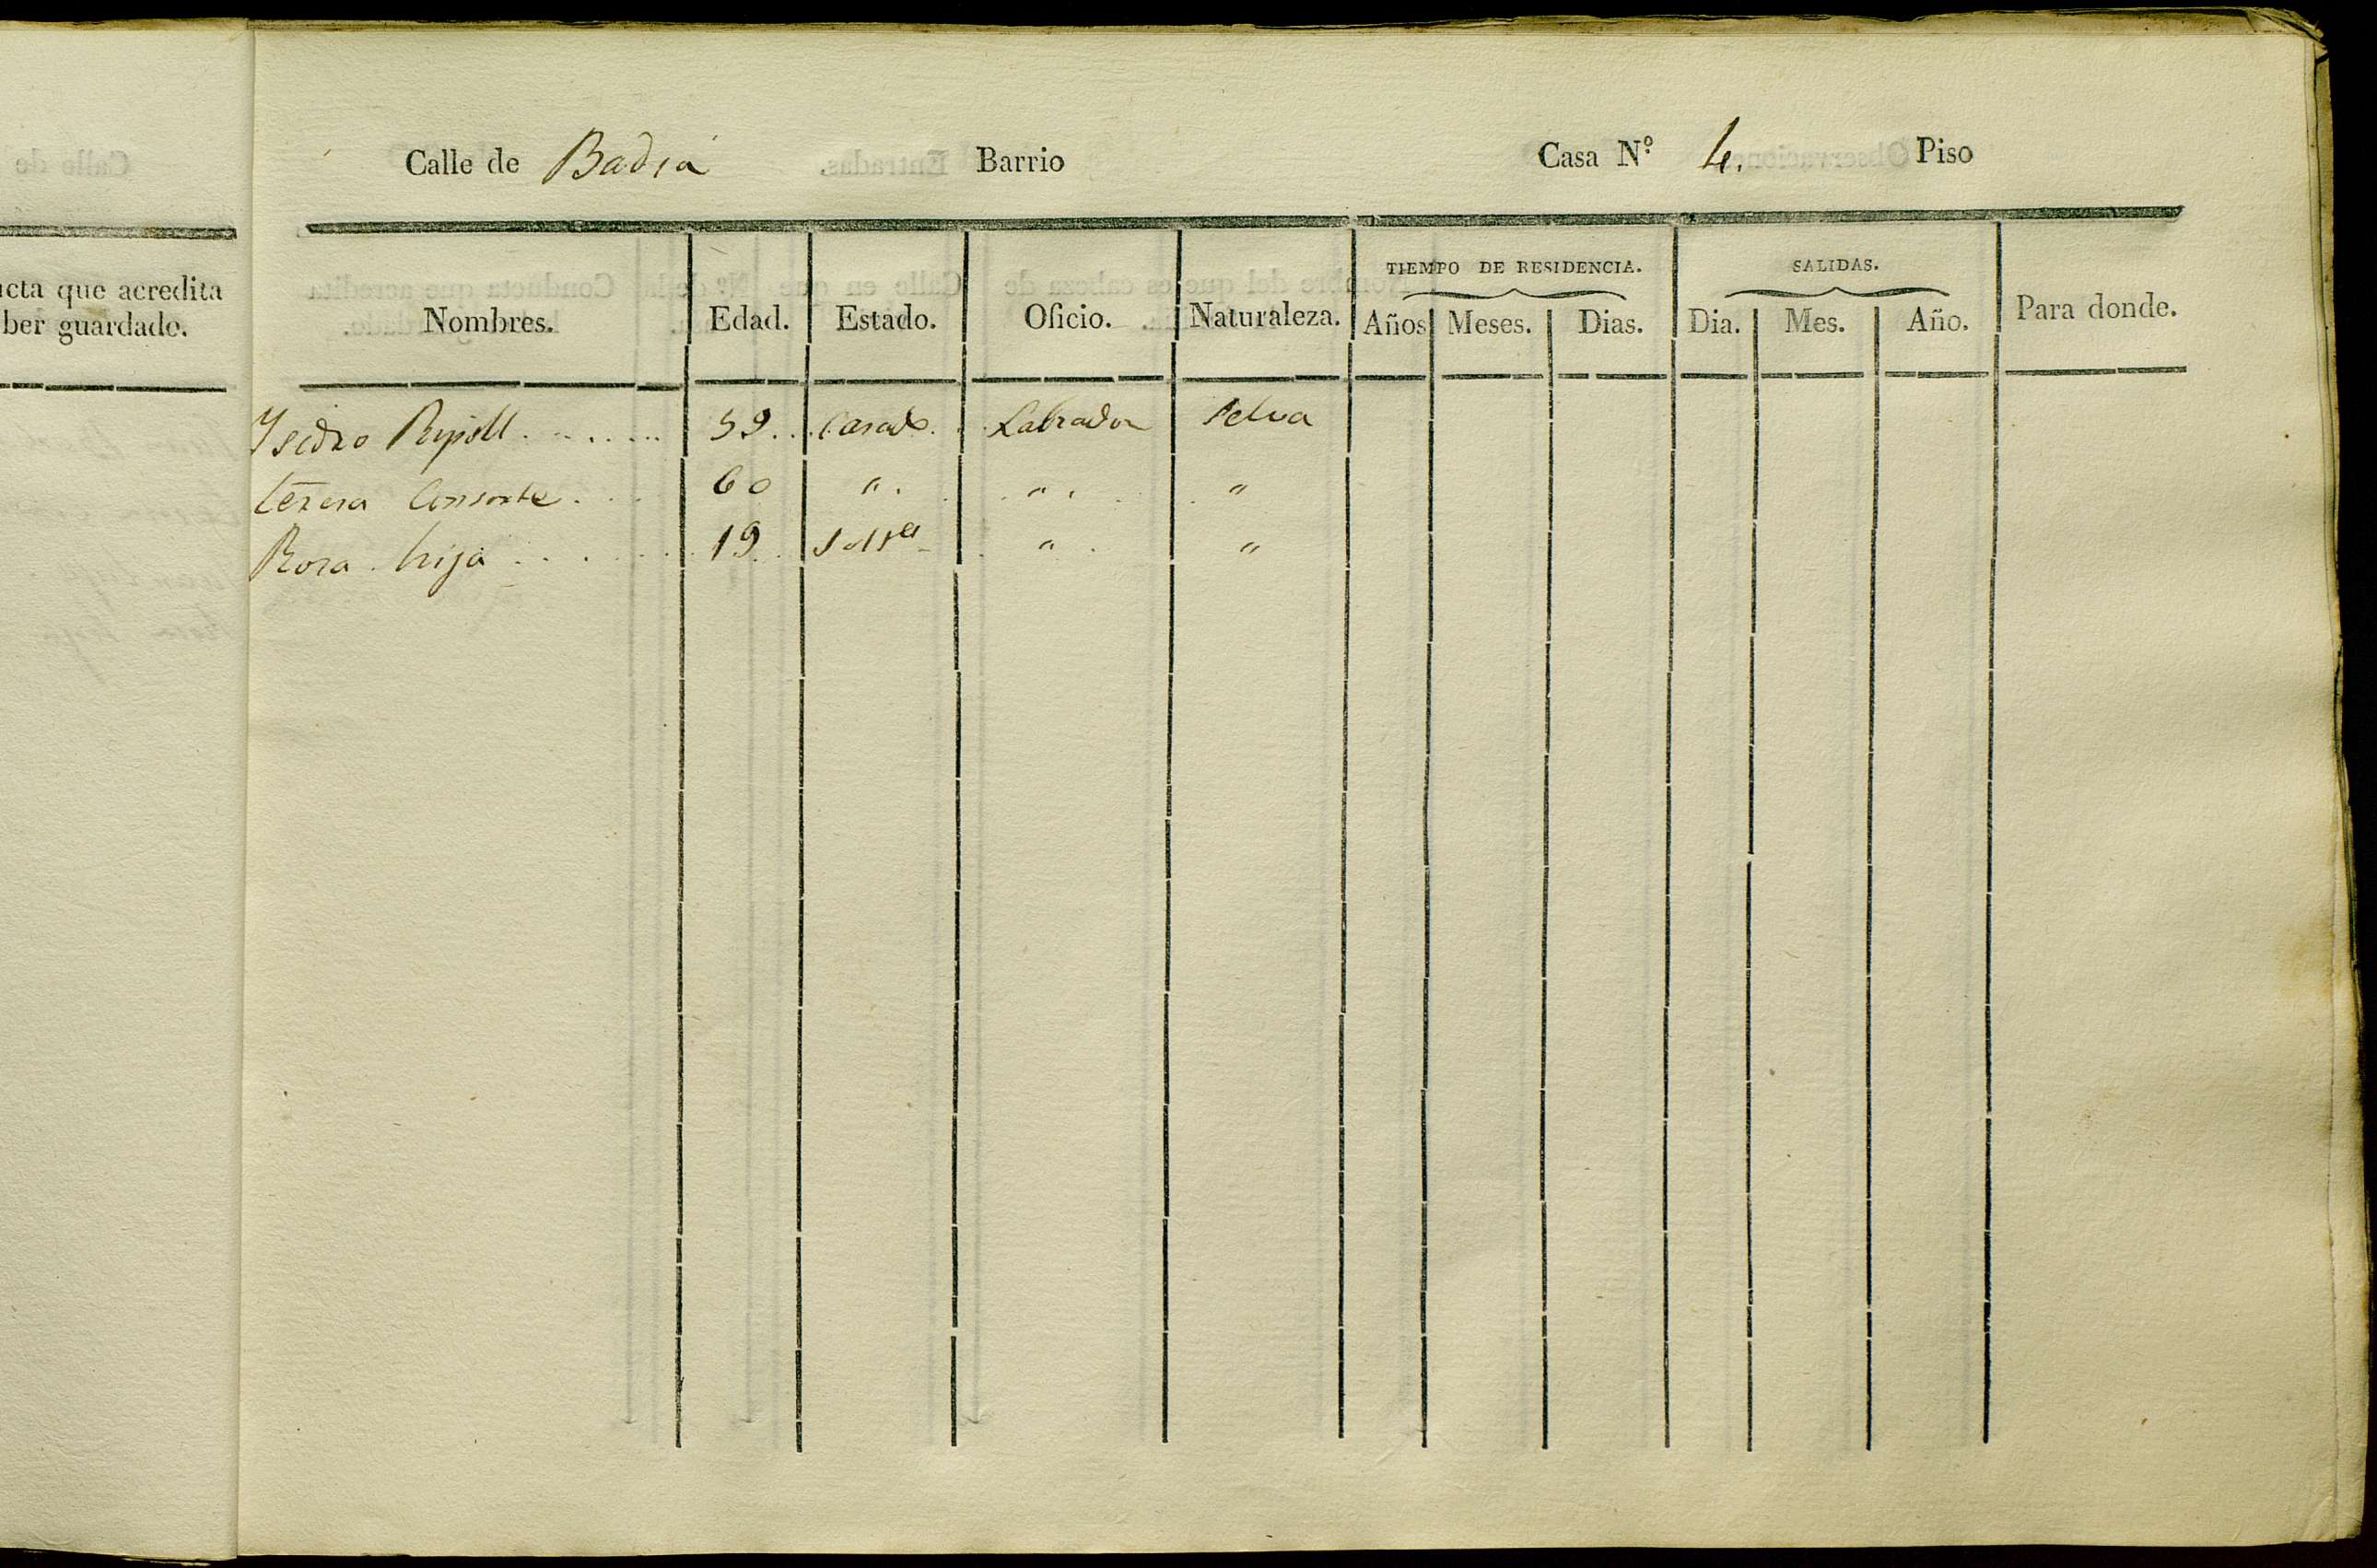 Calle de Badia Barrio Casa N.º 4. Piso
acredita
guardado.
TIEMPO DE RESIDENCIA. SALIDAS.
Nombres. Edad. Estado. Oficio. Naturaleza. Años Meses. Dias. Dia. Mes. Año. Para donde.
Ysidro Ripoll . . . . . . . 59 . . Casado . . Labrador Selva
Teresa Consorte . . . 60 " . . " . . "
Rosa hija . . . . . . 19 . . Solt.ª . " . "